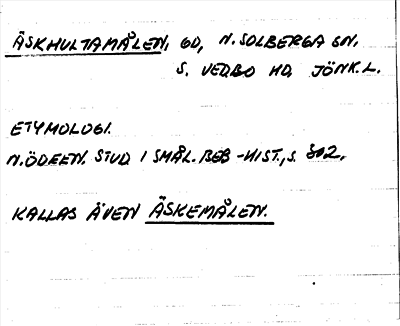 ÄSKHULTAMÅLEN, GD, N. SOLBERGA SN,
S. VEDBO HD, JÖNK. L.
ETYMOLOGI.
N. ÖDEEN. STUD I SMÅL. BEB-HIST., S. 302.
KALLAS ÄVEN ÄSKEMÅLEN.